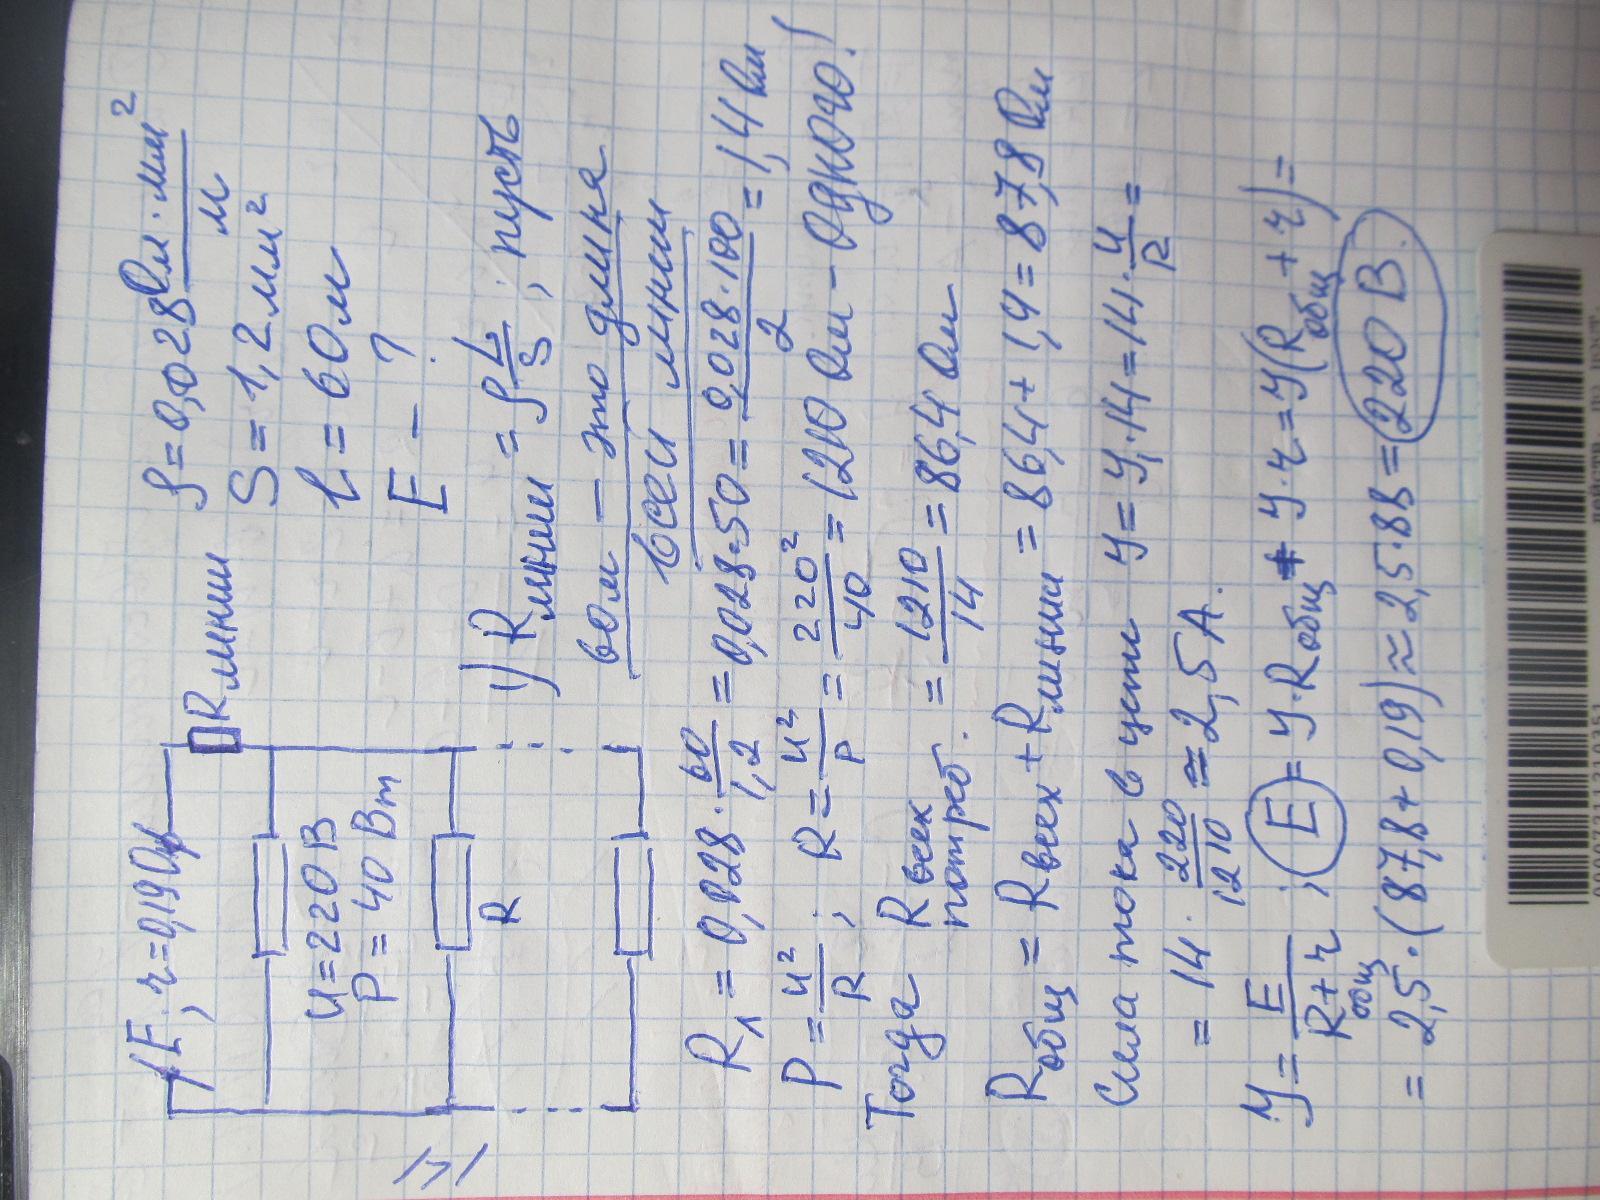 E, r=0,19 Ом
R линии
U=220 В
P=40 Вт
R
ρ=0,028 Ом·мм²/м
S=1,2 мм²
l=60м
E - ?
1) Rлинии = ρ L/S; пусть
60м - это длина
всей линии
Rл = 0,028 · 60/1,2 = 0,028·50 = 0,028·100/2 = 1,4 Ом
P = U²/R; R = U²/P = 220²/40 = 1210 Ом - Одного!
Тогда R всех потреб. = 1210/14 = 86,4 Ом
Rобщ = Rвсех + Rлинии = 86,4 + 1,4 = 87,8 Ом
Сила тока в цепи У = У₁·14 = 14·U/R =
= 14 · 220/1210 ≈ 2,5 А.
У = E/(Rобщ + r); E = У·Rобщ + У·r = У(Rобщ + r) =
= 2,5·(87,8+0,19) ≈ 2,5·88 = 220 В.